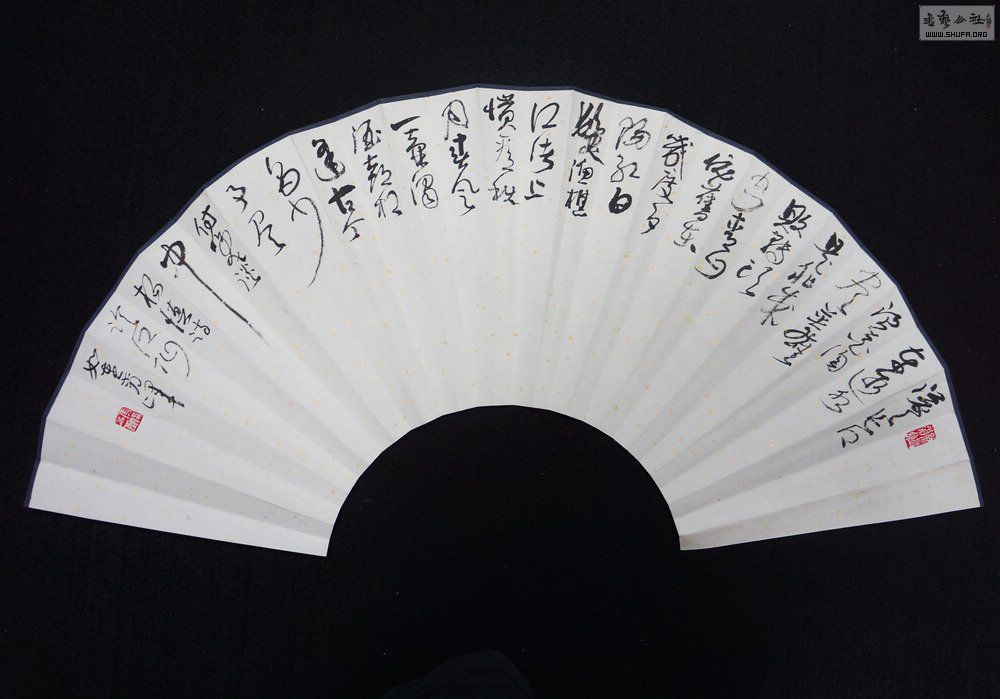 滚々长江
东逝水
浪花淘
尽英雄
是非成
败转头
空青山
依舊在
幾度夕
陽红白
髮渔樵
江渚上
惯看秋
月春风
一壶濁
酒喜相
逢古今
多少
事
付笑谈
中
杨慎词
临江仙
书艺公社
WWW.SHUFA.ORG